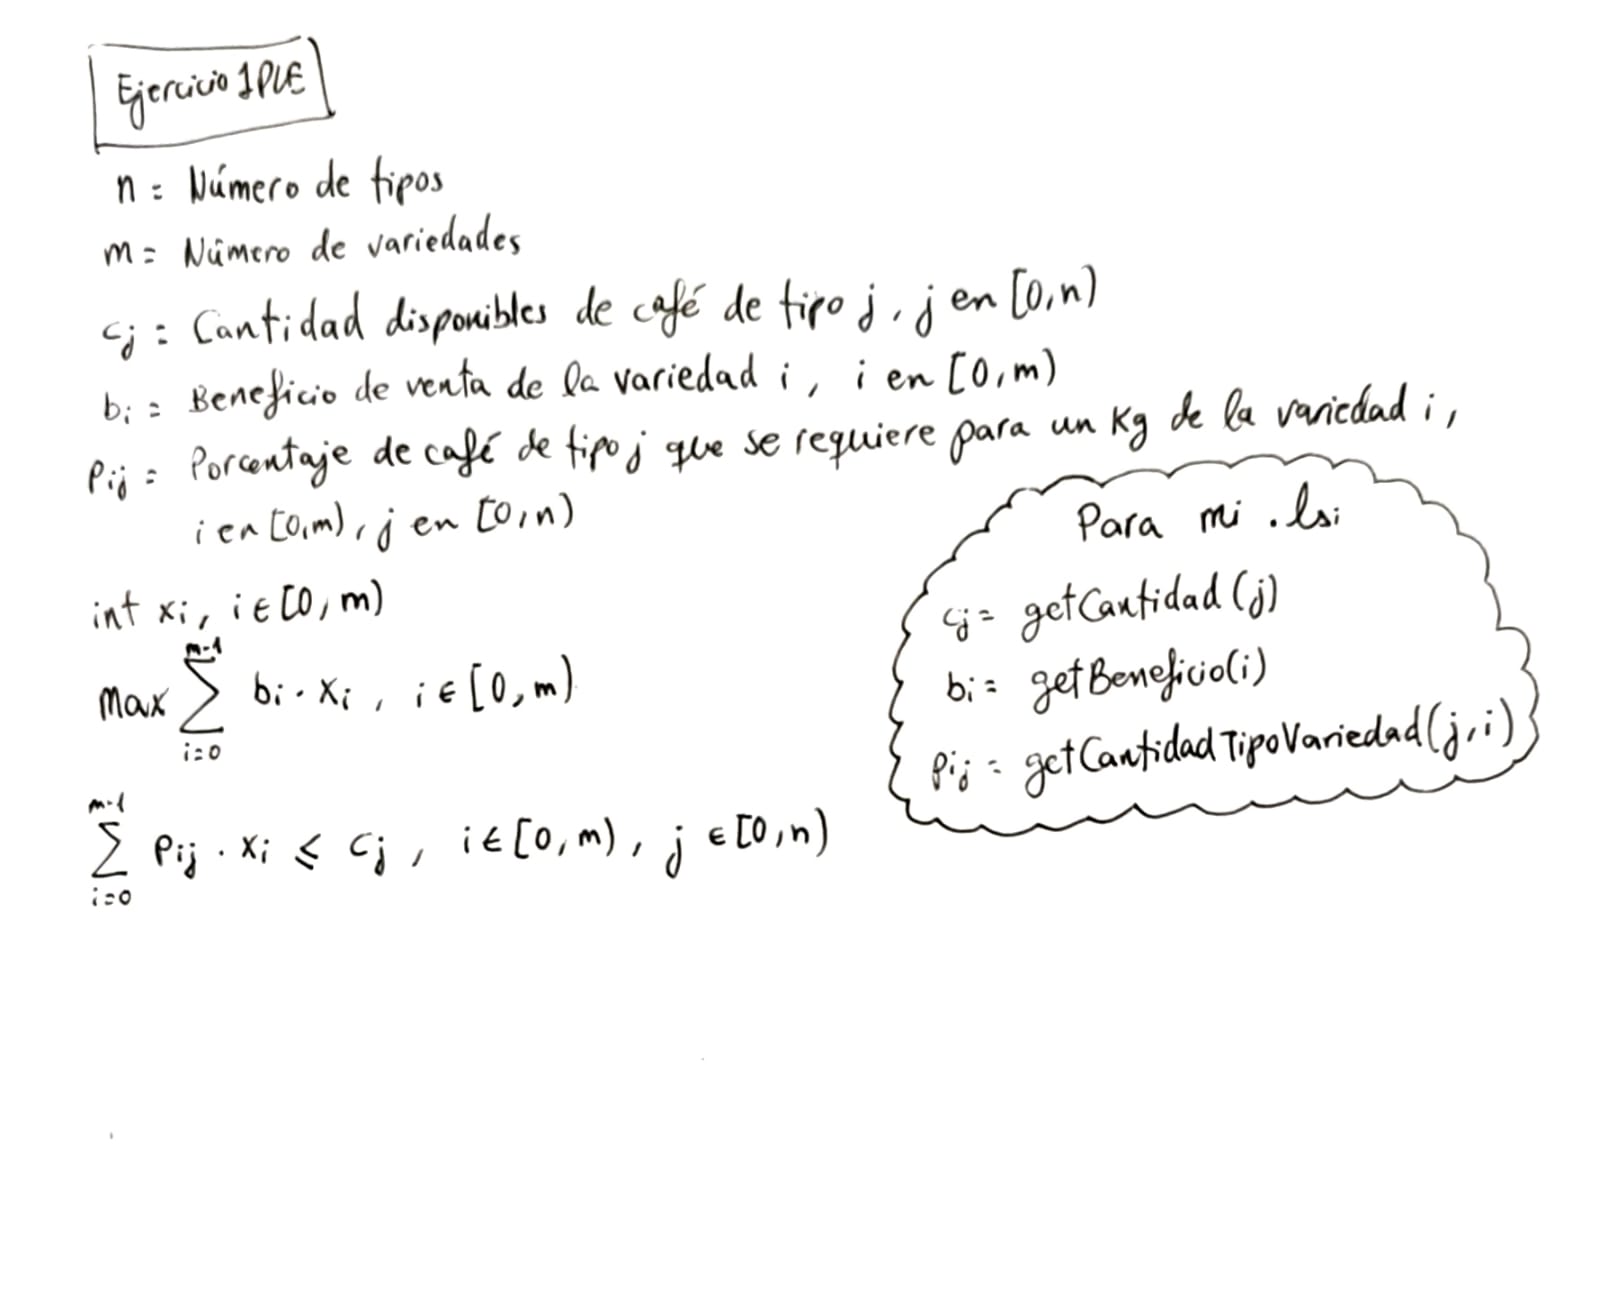 Ejercicio 1 PLE
n = Número de tipos
m = Número de variedades
cj = Cantidad disponibles de café de tipo j, j en [0,n)
bi = Beneficio de venta de la variedad i, i en [0,m)
Pij = Porcentaje de café de tipo j que se requiere para un Kg de la variedad i,
i en [0,m), j en [0,n)
int xi, i ∈ [0,m)
Max ∑ i=0 m-1 bi · xi, i ∈ [0,m)
∑ i=0 m-1 Pij · xi ≤ cj, i ∈ [0,m), j ∈ [0,n)
Para mi .lsi
cj = getCantidad(j)
bi = getBeneficio(i)
Pij = getCantidadTipoVariedad(j,i)